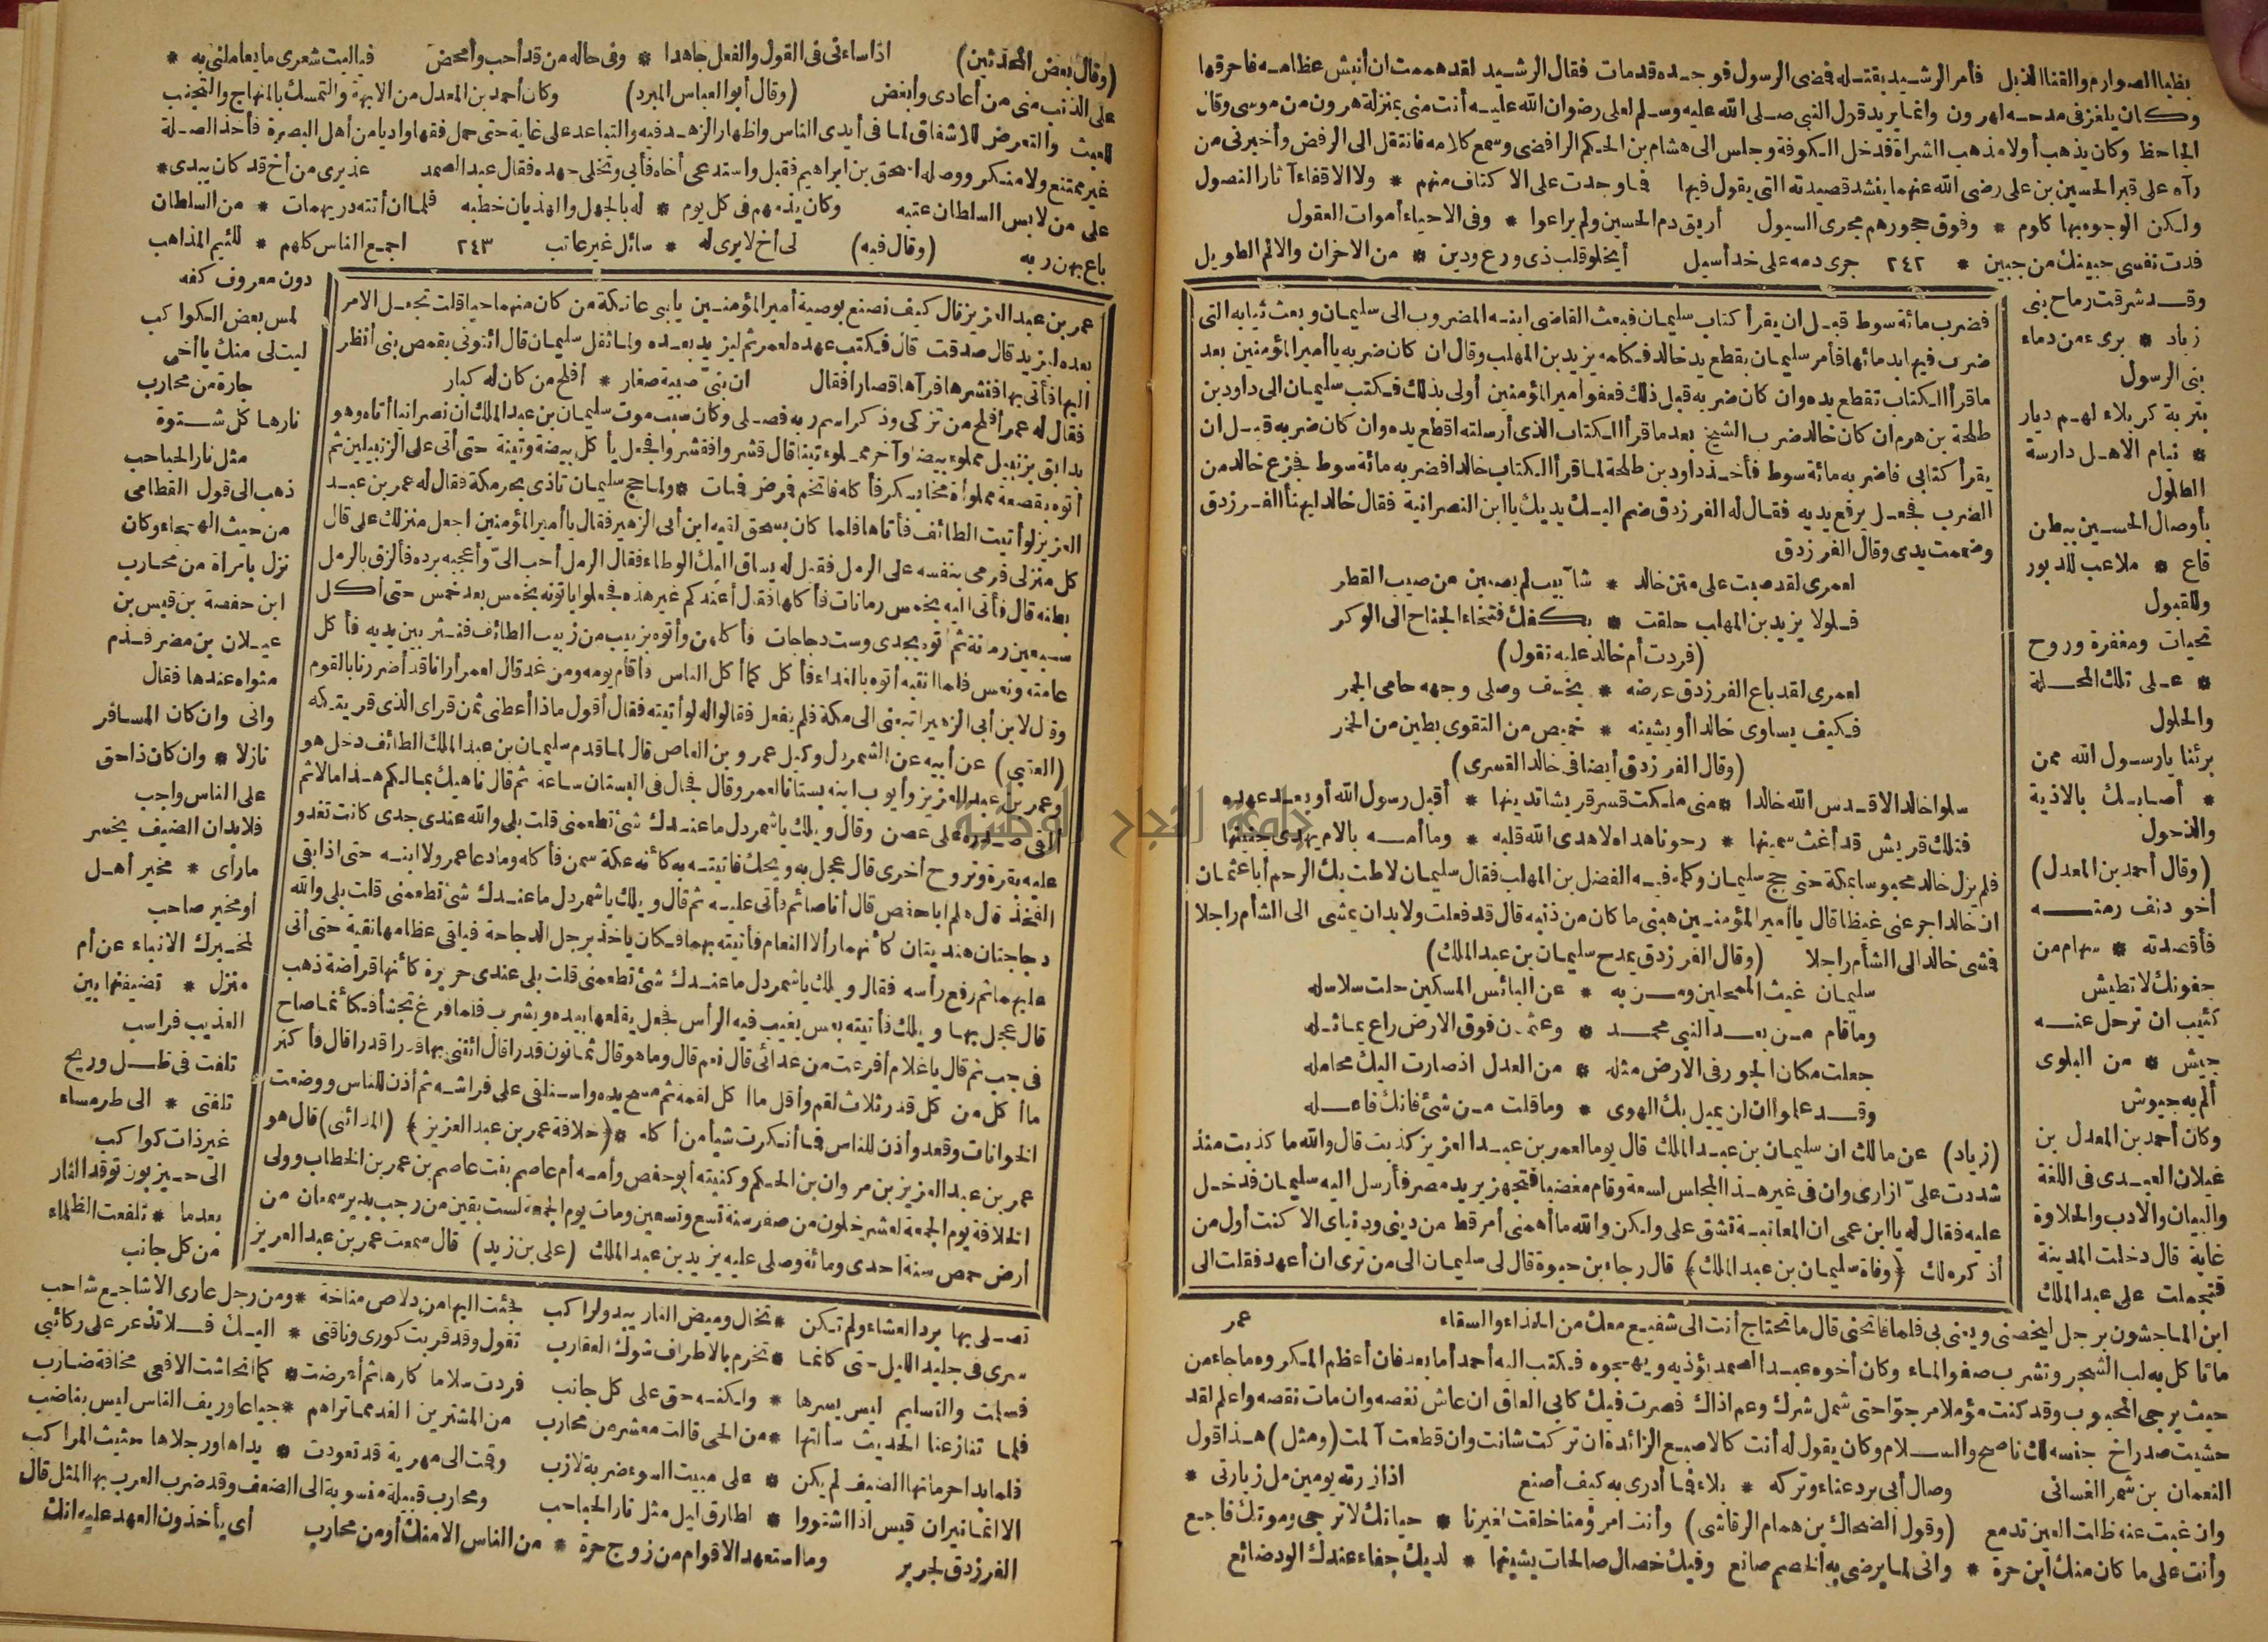 بظبا الصوارم والقنا الذبل فأمر الرشيد بقتله فمضى الرسول فوجده قدمات فقال الرشيد لقد هممت ان أنبش عظامه فأحرقها
وكان يلغز فى مدحه لهرون وانما يريد قول النبى صلى الله عليه وسلم لعلى رضوان الله عليه أنت منى بمنزلة هرون من موسى وقال
الجاحظ وكان يذهب أولا مذهب الشراة فدخل الكوفة وجلس الى هشام بن الحكم الرافضى وسمع كلامه فانتقل الى الرفض وأخبرنى من
رآه على قبر الحسين بن على رضى الله عنهما ينشد قصيدته التى يقول فيها فما وجدت على الاكتاف منهم * ولا الاقفاء آثار النصول
ولكن الوجوه بها كلوم * وفوق حجورهم مجرى السيول أريق دم الحسين ولم يراعوا * وفى الاحياء أموات العقول
فدت نفسى جبينك من جبين * ٢٤٢ جرى دمه على خد أسيل أيخلو قلب ذى ورع ودين * من الاحزان والالم الطويل
وقد شرقت رماح بنى
زياد * برى ءمن دماء
بنى الرسول
بتربة كربلاء لهم ديار
* نيام الاهل دارسة
الطلول
بأوصال الحسين ببطن
قاع * ملاعب للدبور
وللقبول
تحيات ومغفرة وروح
* على تلك المحلة
والحلول
برئنا يارسول الله ممن
* أصابك بالاذية
والذحول
(وقال أحمد بن المعدل)
أخو دنف رمته
فأقصدته * سهام من
جفونك لا تطيش
كئيب ان ترحل عنه
جيش * من البلوى
ألم به جيوش
وكان أحمد بن المعدل بن
غيلان العبدى فى اللغة
والبيان والادب والحلاوة
غاية قال دخلت المدينة
فتحملت على عبد الملك
فضرب مائة سوط قبل ان يقرأ كتاب سليمان فبعث القاضى ابنه المضروب الى سليمان وبعث ثيابه التى
ضرب فيها بدمائها فأمر سليمان بقطع يد خالد فكلمه يزيد بن المهلب وقال ان كان ضربه يا أمير المؤمنين بعد
ما قرأ الكتاب تقطع يده وان كان ضربه قبل ذلك فعفو أمير المؤمنين أولى بذلك فكتب سليمان الى داود بن
طلحة بن هرم ان كان خالد ضرب الشيخ بعد ما قرأ الكتاب الذى أرسلته اقطع يده وان كان ضربه قبل أن
يقرأ كتابى فاضربه مائة سوط فأخذ داود بن طلحة لما قرأ الكتاب خالدا فضربه مائة سوط فجزع خالد من
الضرب فجعل يرفع يديه فقال له الفرزدق ضم اليك يديك يا ابن النصرانية فقال خالد ليهنأ الفرزدق
وضممت يدى وقال الفرزدق
لعمرى لقد صبت على متن خالد * شآبيب لم يصبن من صيب القطر
فلولا يزيد بن المهلب حلقت * بكفك فتخاء الجناح الى الوكر
(فردت أم خالد عليه تقول)
لعمرى لقد باع الفرزدق عرضه * بخسف وصلى وجهه حامى الجمر
فكيف يساوى خالدا أو يشينه * خميص من التقوى بطين من الخمر
(وقال الفرزدق أيضا فى خالد القسرى)
سلوا خالدا لا قدس الله خالدا * متى ملكت قسر قريشا تدينها * أقبل رسول الله أو بعد عهده
فتلك قريش قد أغث سمينها * رجونا هداه لا هدى الله قلبه * وما أمه بالام يهدى جنينها
فلم يزل خالد محبوسا بمكة حتى حج سليمان وكله فيه الفضل بن المهلب فقال سليمان لاطت بك الرحم أبا عثمان
ان خالدا جرعنى غيظا قال يا أمير المؤمنين هبنى ما كان من ذنبه قال قد فعلت ولا بد ان يمشى الى الشأم راجلا
فمشى خالد الى الشأم راجلا (وقال الفرزدق يمدح سليمان بن عبد الملك)
سليمان غيث الممحلين ومن به * عن البائس المسكين حلت سلاسله
وما قام من بعد النبى محمد * وعثمان فوق الارض راع يماثله
جعلت مكان الجور فى الارض مثله * من العدل اذ صارت اليك محامله
وقد علموا ان لن يميل بك الهوى * وما قلت من شئ فانك فاعله
(زياد) عن مالك ان سليمان بن عبد الملك قال يوما لعمر بن عبد العزيز كذبت قال والله ما كذبت منذ
شددت علىّ ازارى وان فى غير هذا المجلس لسعة وقام مغضبا فتجهز يريد مصر فأرسل اليه سليمان فدخل
عليه فقال له يا ابن عمى ان المعاتبة تشق على ولكن والله ما أهمنى أمر قط من دينى ودنياى الا كنت أول من
أذكره لك (وفاة سليمان بن عبد الملك) قال رجاء بن حيوة قال لى سليمان الى من ترى ان أعهد فقلت الى
عمر
ابن الماجشون برجل ليخصنى ويعنى بى فلما فاتحنى قال ما تحتاج أنت الى شفيع معك من الحذاء والسقاء
ما تأكل به لب الشجر وتشرب صفو الماء وكان أخوه عبد الصمد يؤذيه ويهجوه فكتب اليه أحمد أما بعد فان أعظم المكروه ما جاء من
حيث يرجى المحبوب وقد كنت مؤملا مرجوّا حتى شمل شرك وعم اذاك فصرت فيك كابى العاق ان عاش نغصه وان مات نقصه واعلم لقد
خشيت صدر اخ جنسه لك ناصح والسلام وكان يقول له أنت كالاصبع الزائدة ان تركت شانت وان قطعت آلمت (ومثل) هذا قول
النعمان بن شمر الغسانى وصال أبى برد عناء وتركه * بلاء فما أدرى به كيف أصنع اذا زرته يومين مل زيارتى *
وان غبت عنه ظلت العين تدمع (وقول الضحاك بن همام الرقاشى) وأنت امرؤ منا خلقت لغيرنا * حياتك لا ترجى وموتك فاجع
وأنت على ما كان منك ابن حرة * وانى لما يرضى به الخصم صانع وفيك خصال صالحات يشينها * لديك جفاء عندك الود ضائع
(وقال بعض المحدثين) اذا ساءنى فى القول والفعل جاهدا * وفى حاله من قد أحب وأمحض فيا ليت شعرى ما يعاملنى به *
على الذنب منى من أعادى وأبغض (وقال أبو العباس المبرد) وكان أحمد بن المعدل من الابهة والتمسك بالمنهاج والتجنب
للعبث والتعرض للاشفاق لما فى أيدى الناس واظهار الزهد فيه والتباعد على غاية حتى حمل فقهاواديا من أهل البصرة فأخذ الصلة
غير ممتنع ولا منكر ووصله اسحق بن ابراهيم فقبل واستدعى أخاه فأبى وتخلى جهده فقال عبد الصمد عذيرى من أخ قد كان يبدى *
على من لابس السلطان عتبه وكان يذمهم فى كل يوم * له بالجهل والهذيان خطبه فلما ان أتته دريهمات * من السلطان
باع بهن ربه (وقال فيه) لى أخ لا يرى له * سائل غير عاتب ٢٤٣ اجمع الناس كلهم * للئيم المذاهب
دون معروف كفه
لمس بعض الكواكب
ليت لى منك يا أخى
جارة من محارب
نارها كل شتوة
مثل نار الحباحب
ذهب الى قول القطامى
من حيث الهجاء وكان
نزل بامرأة من محارب
ابن حفصة بن قيس بن
عيلان بن مضر فذم
مثواه عندها فقال
وانى وان كان المسافر
نازلا * وان كان ذا حق
على الناس واجب
فلا بد ان الضيف يخبر
ما رأى * مخبر أهل
أو مخبر صاحب
لمخبرك الانباء عن أم
منزل * تضيفتها بين
العذيب فراسب
تلفت فى طل وريح
تلفنى * الى طرمساء
غير ذات كواكب
الى حيزبون توقد النار
بعدما * تلفعت الظلماء
من كل جانب
عمر بن عبد العزيز قال كيف نصنع بوصية أمير المؤمنين يا بى عاتكة من كان منهما حيا قلت تجعل الامر
بعده ليزيد قال صدقت قال فكتب عهده لعمر ثم ليزيد بعده ولما ثقل سليمان قال ائتونى بقمص بنى أنظر
اليها فأتى بها فنشرها فرآها قصارا فقال ان بنىّ صبية صغار * أفلح من كان له كبار
فقال له عمر أفلح من تزكى وذكر اسم ربه فصلى وكان سبب موت سليمان بن عبد الملك ان نصرانيا أتاه وهو
بدابق بزنبيل مملوء بيضا وآخر مملوء تينا قال قشروا فقشروا فجعل يأكل بيضة وتينة حتى أتى على الزنبيلين ثم
أتوه بقصعة مملوأة مخا بسكر فأكله فاتخم فمرض فمات * ولما حج سليمان تأذى بحر مكة فقال له عمر بن عبد
العزيز لو أتيت الطائف فأتاها فلما كان بسحق لقيه ابن أبى الزهير فقال يا أمير المؤمنين اجعل منزلك على قال
كل منزلى فرمى بنفسه على الرمل فقيل له يساق اليك الوطاء فقال الرمل أحب الىّ وأعجبه برده فألزق بالرمل
بطنه قال فأتى اليه بخمس رمانات فأكلها فقال أعندكم غير هذه فجعلوا ياتونه بخمس بعد خمس حتى أكل
سبعين رمانة ثم أتوه بجدى وست دجاجات فأكلهن وأتوه بزبيب من زبيب الطائف فنثر بين يديه فأكل
عامته ونعس فلما انتبه أتوه بالغداء فأكل كما أكل الناس فأقام يومه ومن غد قال لعمر أرانا قد أضررنا بالقوم
وقال لابن أبى الزهير اتبعنى الى مكة فلم يفعل فقالوا له لو أتيته فقال أقول ماذا أعطنى ثمن قراى الذى قريتكه
(العتبى) عن أبيه عن الشمردل وكيل عمرو بن العاص قال لما قدم سليمان بن عبد الملك الطائف دخل هو
وعمر بن عبد العزيز وأيوب ابنه بستانا لعمرو قال فجال فى البستان ساعة ثم قال ناهيك بمالكم هذا مالا ثم
ألقى صدره على غصن وقال ويلك يا شمردل ما عندك شئ تطعمنى قلت بلى والله عندى جدى كانت تغدو
عليه بقرة وتروح أخرى قال عجل به ويحك فاتيته به كأنه عكة سمن فأكله وما دعا عمر ولا ابنه حتى اذا بقى
الفخذ قال هلم أبا حفص قال أنا صائم فأتى عليه ثم قال ويلك يا شمردل ما عندك شئ تطعمنى قلت بلى والله
دجاجتان هنديتان كأنهما رألا النعام فأتيته بهما فكان يأخذ برجل الدجاجة فيلقى عظامها نقية حتى أتى
عليهما ثم رفع رأسه فقال ويلك يا شمردل ما عندك شئ تطعمنى قلت بلى عندى حريرة كأنها قراضة ذهب
قال عجل بها ويلك فأتيته بعس يغيب فيه الرأس فجعل يقلعها بيده ويشرب فلما فرغ تجشأ فكأنما صاح
فى جب ثم قال يا غلام أفرغت من غدائى قال نعم قال وما هو قال ثمانون قدرا قال ائتنى بها قدرا قدرا قال فأكثر
ما أكل من كل قدر ثلاث لقم وأقل ما أكل لقمة ثم مسح يده واستلقى على فراشه ثم أذن للناس ووضعت
الخوانات وقعد وأذن للناس فما أنكرت شيأ من أكله * (خلافة عمر بن عبد العزيز) (المدائنى) قال هو
عمر بن عبد العزيز بن مروان بن الحكم وكنيته أبو حفص وأمه أم عاصم بنت عاصم بن عمر بن الخطاب وولى
الخلافة يوم الجمعة لعشر خلون من صفر سنة تسع وتسعين ومات يوم الجمعة لست بقين من رجب بدير سمعان من
أرض حمص سنة احدى ومائة وصلى عليه يزيد بن عبد الملك (على بن زيد) قال سمعت عمر بن عبد العزيز
تصلى بها برد العشاء ولم تكن * تخال وميض النار يبدو لراكب فجئت اليها من دلاص مناخة * ومن رجل عارى الاشاجع شاحب
سرى فى جليد الليل حتى كانما * تخرم بالاطراف شوك العقارب تقول وقد قربت كورى وناقتى * اليك فلا تذعر على ركائبى
فسلمت والتسليم ليس يسرها * ولكنه حق على كل جانب فردت سلاما كارها ثم أعرضت * كما انحاشت الافعى مخافة ضارب
فلما تنازعنا الحديث سألتها * من الحى قالت معشر من محارب من المشترين القد مما تراهم * جياعا وريف الناس ليس بناضب
فلما بدا حرمانها الضيف لم يكن * على مبيت السوء ضربة لازب وقمت الى مهرية قد تعودت * يداها ورجلاها حثيث المراكب
الا انما نيران قيس اذا اشتووا * لطارق ليل مثل نار الحباحب ومحارب قبيلة منسوبة الى الضعف وقد ضرب العرب بها المثل قال
الفرزدق لجرير وما استعهد الاقوام من زوج حرة * من الناس الا منك أو من محارب أى يأخذون العهد عليه انك
جامعة النجاح الوطنية